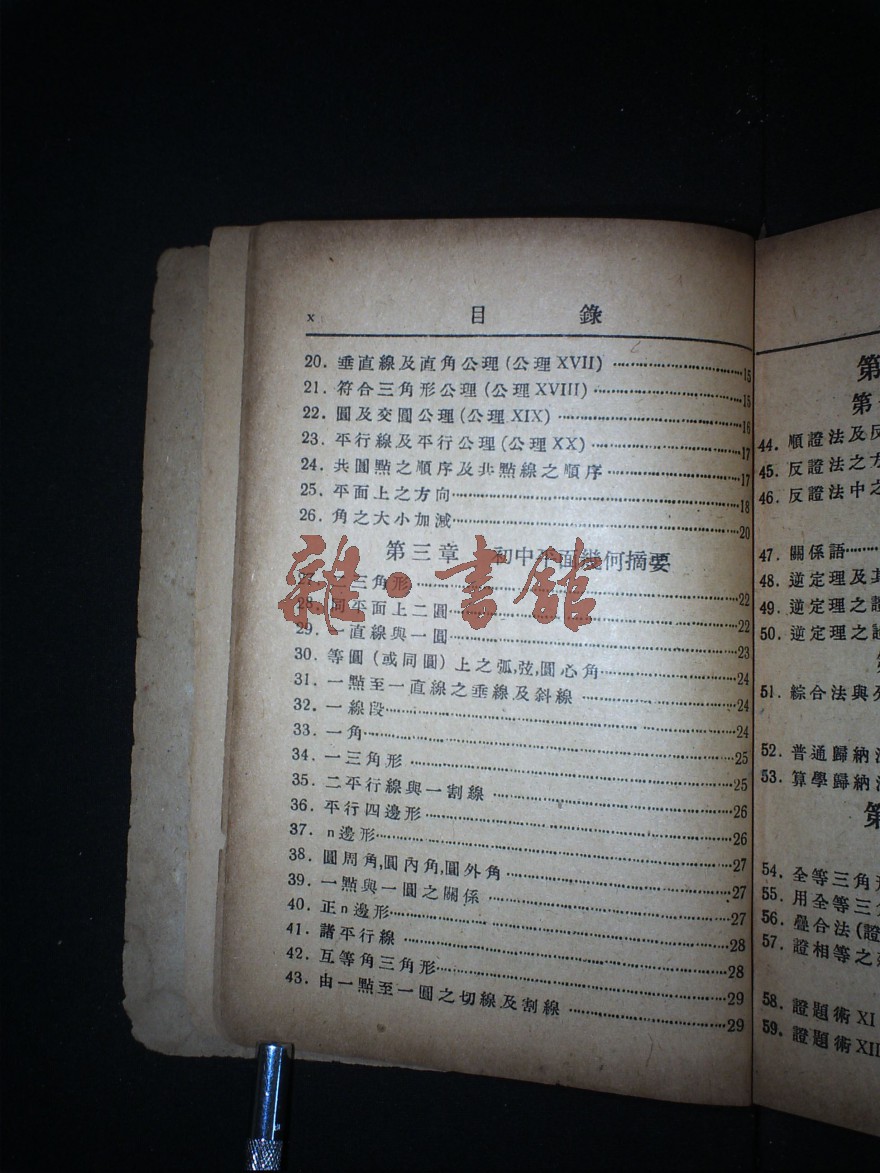 x 目 錄
20. 垂直線及直角公理(公理XVII)……15
21. 符合三角形公理(公理XVIII)……15
22. 圓及交圓公理(公理XIX)……16
23. 平行線及平行公理(公理XX)……17
24. 共圓點之順序及共點線之順序……17
25. 平面上之方向……18
26. 角之大小加減……20
第三章 初中平面幾何摘要
27. 二三角形……22
28. 同平面上二圓……22
29. 一直線與一圓……23
30. 等圓(或同圓)上之弧,弦,圓心角……24
31. 一點至一直線之垂線及斜線……24
32. 一線段……24
33. 一角……25
34. 一三角形……25
35. 二平行線與一割線……26
36. 平行四邊形……26
37. n邊形……27
38. 圓周角,圓內角,圓外角……27
39. 一點與一圓之關係……27
40. 正n邊形……28
41. 諸平行線……28
42. 互等角三角形……29
43. 由一點至一圓之切線及割線……29
雜·書館
第
第
44. 順證法及反
45. 反證法之方
46. 反證法中之
47. 關係語……
48. 逆定理及其
49. 逆定理之證
50. 逆定理之
51. 綜合法與
52. 普通歸納法
53. 算學歸納法
第
54. 全等三角形
55. 用全等三
56. 疊合法(證
57. 證相等之
58. 證題術XI
59. 證題術XII